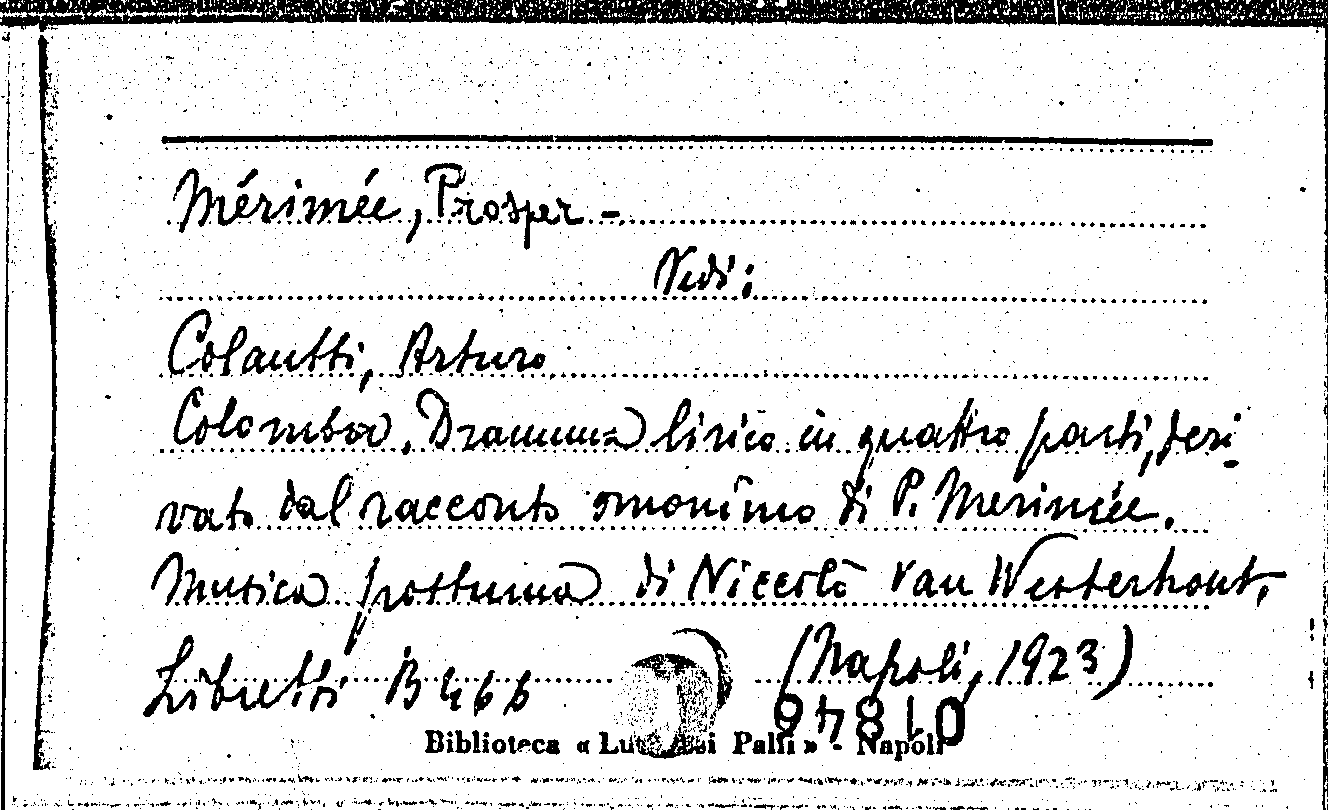 Mérimée, Prosper -
Vedi:
Colautti, Arturo
Colomba. Dramma lirico in quattro parti, deri-
vato dal racconto omonimo di P. Merimée.
Musica postuma di Niccolò van Westerhout,
(Napoli, 1923)
Libretti B 466
01846
Biblioteca « Lu si Palli » - Napoli